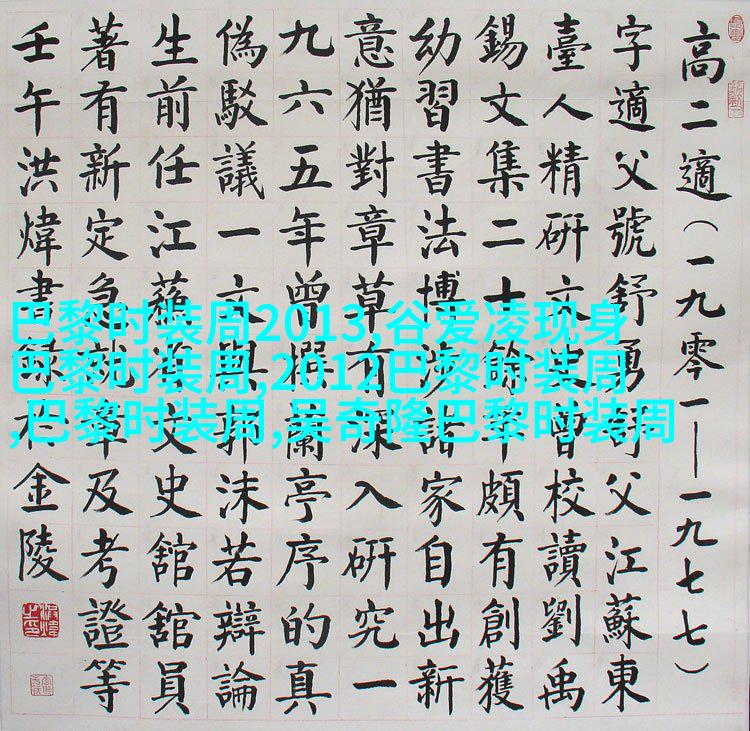 高二適（一九零一——一九七七）
字適父號舒父江蘇東
臺人精研文史曾校讀劉禹
錫文集二十餘年頗有創獲
幼習書法博涉諸家自出新
意猶對章草有深入研究一
九六五年曾撰蘭亭序的真
偽駁議一文與郭沫若辯論
生前任江蘇文史舘舘員
著有新定急就章及考證等
壬午洪煒書錄於金陵
巴黎时装周2013,谷爱凌现身
巴黎时装周,2012巴黎时装周
,巴黎时装周,吴奇隆巴黎时装周